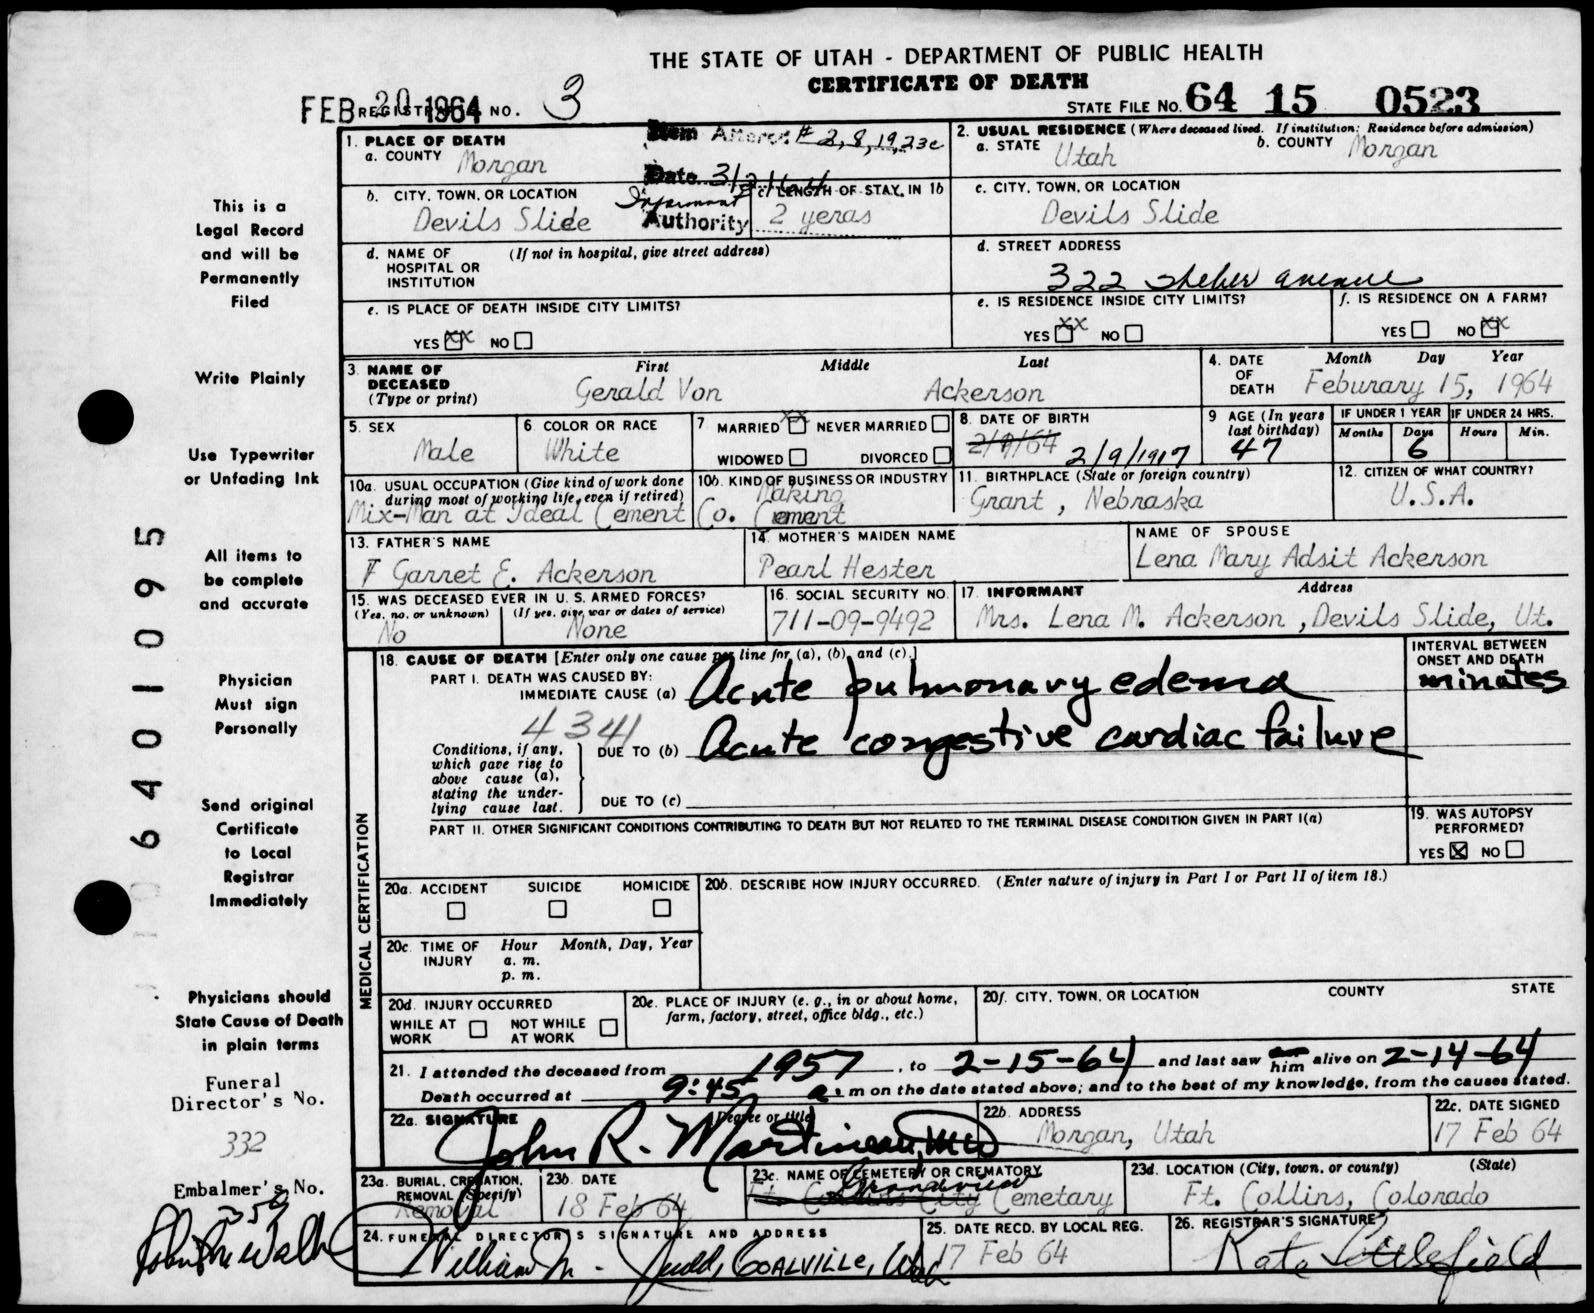 THE STATE OF UTAH - DEPARTMENT OF PUBLIC HEALTH
CERTIFICATE OF DEATH
FEB 20 1964 REGISTRAR'S NO. 3
STATE FILE NO. 64 15 0523
Item Altered # 2, 8, 19, 23c
Date 3/2/64
Informant
Authority
This is a
Legal Record
and will be
Permanently
Filed
Write Plainly
Use Typewriter
or Unfading Ink
All items to
be complete
and accurate
Physician
Must sign
Personally
Send original
Certificate
to Local
Registrar
Immediately
Physicians should
State Cause of Death
in plain terms
Funeral
Director's No.
332
Embalmer's No.
350
6401095
1. PLACE OF DEATH
a. COUNTY Morgan
b. CITY, TOWN, OR LOCATION
Devils Slide
c. LENGTH OF STAY IN 1b
2 yeras
d. NAME OF HOSPITAL OR INSTITUTION (If not in hospital, give street address)
e. IS PLACE OF DEATH INSIDE CITY LIMITS?
YES XX NO
2. USUAL RESIDENCE (Where deceased lived. If institution: Residence before admission)
a. STATE Utah
b. COUNTY Morgan
c. CITY, TOWN, OR LOCATION
Devils Slide
d. STREET ADDRESS
322 avenue
e. IS RESIDENCE INSIDE CITY LIMITS?
YES XX NO
f. IS RESIDENCE ON A FARM?
YES NO XX
3. NAME OF DECEASED (Type or print)
First Middle Last
Gerald Von Ackerson
4. DATE OF DEATH Month Day Year
Feburary 15, 1964
5. SEX
Male
6. COLOR OR RACE
White
7 MARRIED XX NEVER MARRIED
WIDOWED DIVORCED
8. DATE OF BIRTH
2/9/64 2/9/1917
9 AGE (In years last birthday)
47
IF UNDER 1 YEAR IF UNDER 24 HRS.
Months Days Hours Min.
6
10a. USUAL OCCUPATION (Give kind of work done during most of working life, even if retired)
Mix-Man at Ideal Cement Co.
10b. KIND OF BUSINESS OR INDUSTRY
Making
Cement
11. BIRTHPLACE (State or foreign country)
Grant, Nebraska
12. CITIZEN OF WHAT COUNTRY?
U.S.A.
13. FATHER'S NAME
F Garret E. Ackerson
14. MOTHER'S MAIDEN NAME
Pearl Hester
NAME OF SPOUSE
Lena Mary Adsit Ackerson
15. WAS DECEASED EVER IN U. S. ARMED FORCES?
(Yes, no, or unknown) (If yes, give war or dates of service)
No None
16. SOCIAL SECURITY NO.
711-09-9492
17. INFORMANT Address
Mrs. Lena M. Ackerson, Devils Slide, Ut.
MEDICAL CERTIFICATION
18. CAUSE OF DEATH [Enter only one cause per line for (a), (b), and (c).]
PART I. DEATH WAS CAUSED BY:
IMMEDIATE CAUSE (a) Acute pulmonary edema
INTERVAL BETWEEN ONSET AND DEATH
minutes
4341
Conditions, if any, which gave rise to above cause (a), stating the underlying cause last.
DUE TO (b) Acute congestive cardiac failure
DUE TO (c)
PART II. OTHER SIGNIFICANT CONDITIONS CONTRIBUTING TO DEATH BUT NOT RELATED TO THE TERMINAL DISEASE CONDITION GIVEN IN PART I(a)
19. WAS AUTOPSY PERFORMED?
YES X NO
20a. ACCIDENT SUICIDE HOMICIDE
20b. DESCRIBE HOW INJURY OCCURRED. (Enter nature of injury in Part I or Part II of item 18.)
20c. TIME OF INJURY Hour Month, Day, Year
a. m.
p. m.
20d. INJURY OCCURRED
WHILE AT WORK NOT WHILE AT WORK
20e. PLACE OF INJURY (e. g., in or about home, farm, factory, street, office bldg., etc.)
20f. CITY, TOWN, OR LOCATION COUNTY STATE
21. I attended the deceased from 1957, to 2-15-64 and last saw him alive on 2-14-64
Death occurred at 9:45 a. m on the date stated above; and to the best of my knowledge, from the causes stated.
22a. SIGNATURE (Degree or title)
John R. Martineau, MD
22b. ADDRESS
Morgan, Utah
22c. DATE SIGNED
17 Feb 64
23a. BURIAL, CREMATION, REMOVAL (Specify)
Removal
23b. DATE
18 Feb 64
23c. NAME OF CEMETERY OR CREMATORY
Grandview
Ft. Collins City Cemetary
23d. LOCATION (City, town, or county) (State)
Ft. Collins, Colorado
24. FUNERAL DIRECTOR'S SIGNATURE AND ADDRESS
William M. Judd, COALVILLE, Utah
25. DATE RECD. BY LOCAL REG.
17 Feb 64
26. REGISTRAR'S SIGNATURE
Kate Littlefield